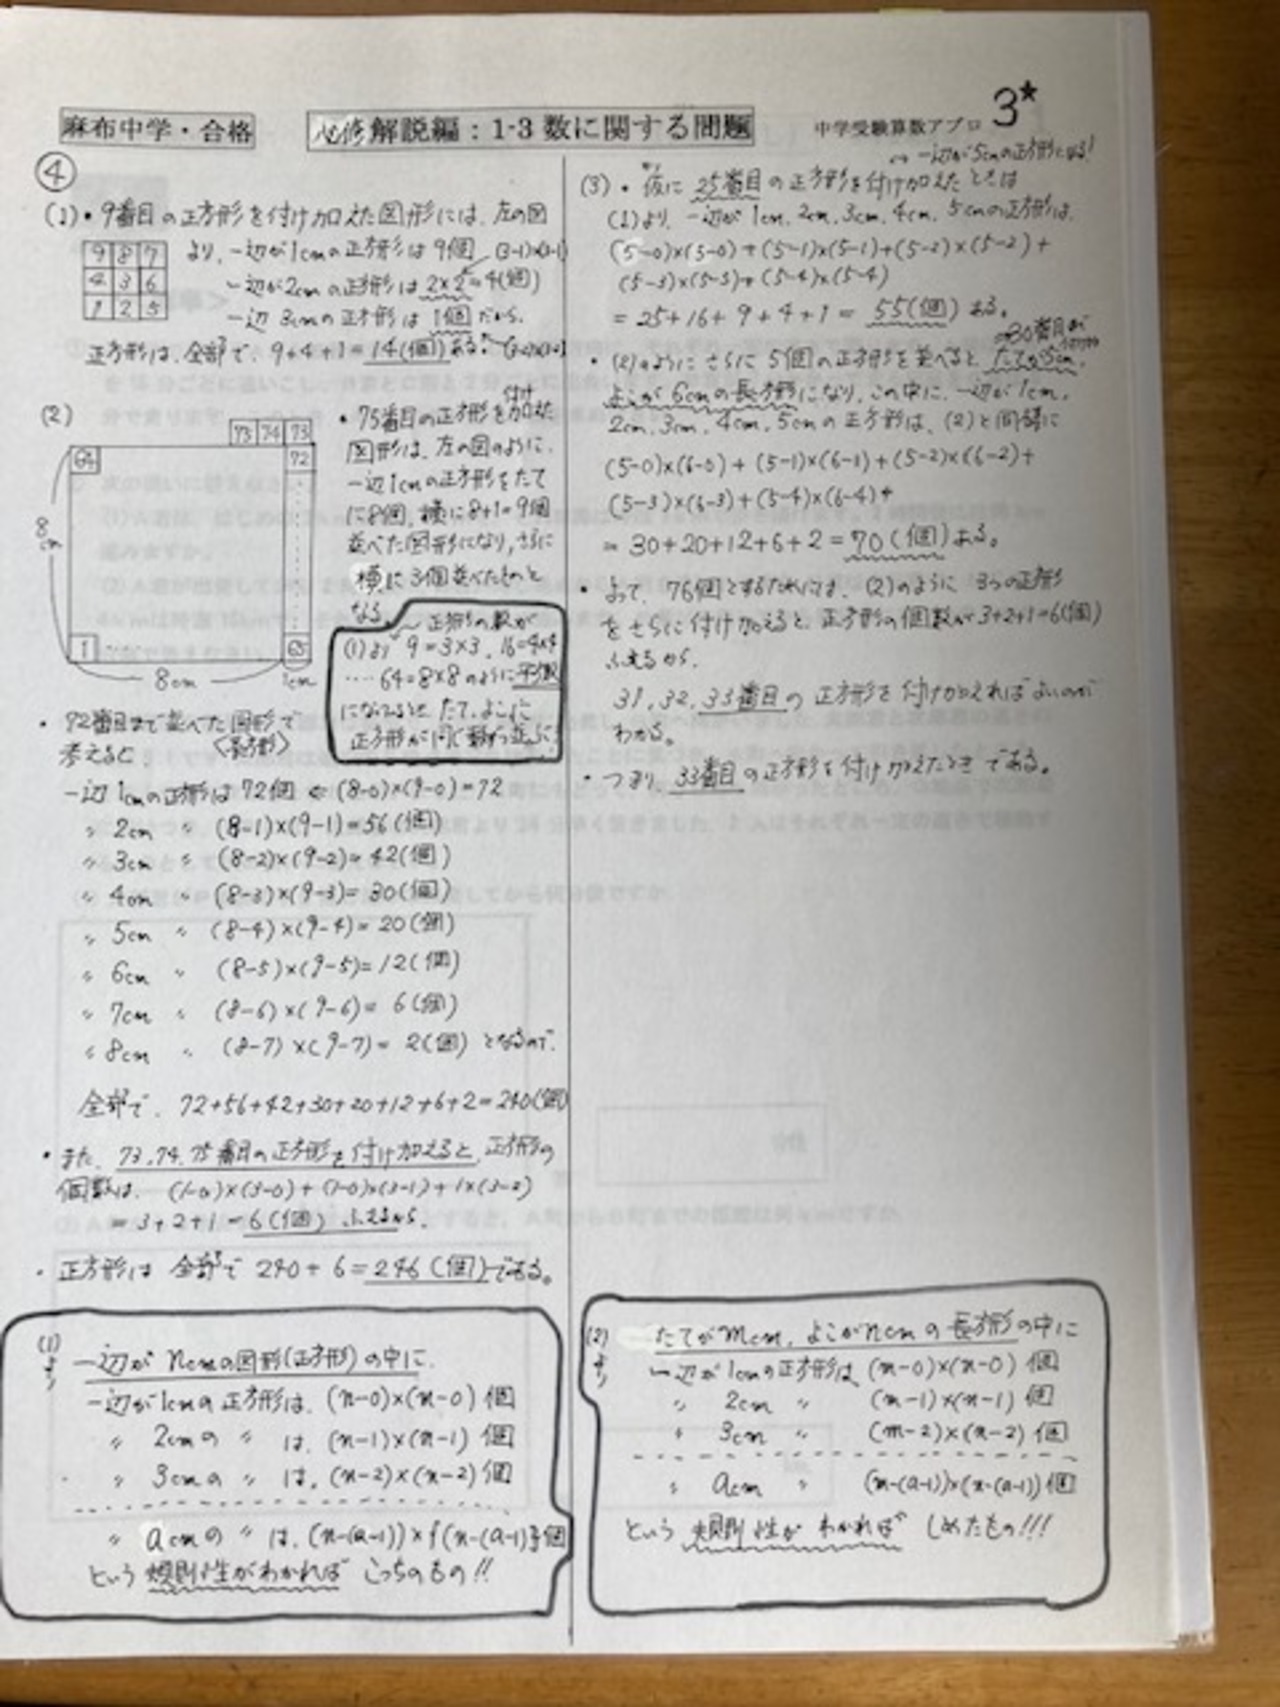 麻布中学・合格
必修解説編：1-3 数に関する問題
中学受験算数アプロ 3★
④
(1)・9番目の正方形を付け加えた図形には、左の図
9 8 7
4 3 6
1 2 5
より、一辺が1cmの正方形は 9個
一辺が2cmの正方形は 2×2=4(個)
一辺 3cmの正方形は 1個 だから、
正方形は、全部で、9+4+1=14(個)ある。
(2)
73 74 73
64 72
8cm
1 65
8cm 1cm
・75番目の正方形を付け加えた
図形は、左の図のように、
一辺1cmの正方形をたて
に8個、横に8+1=9個
並べた図形になり、さらに
横に3個並べたものと
なる。
正方形の数が
(1)より 9=3×3, 16=4×4
…… 64=8×8のように平方数
になってるとき たて、よこに
正方形が同じ数ずつ並ぶ!
・72番目まで並べた図形で
〈長方形〉
考えると
一辺1cmの正方形は 72個 ⇐ (8-0)×(9-0)=72
〃 2cm 〃 (8-1)×(9-1)=56(個)
〃 3cm 〃 (8-2)×(9-2)=42(個)
〃 4cm 〃 (8-3)×(9-3)=30(個)
〃 5cm 〃 (8-4)×(9-4)=20(個)
〃 6cm 〃 (8-5)×(9-5)=12(個)
〃 7cm 〃 (8-6)×(9-6)= 6(個)
〃 8cm 〃 (8-7)×(9-7)= 2(個) となるので、
全部で、72+56+42+30+20+12+6+2=240(個)
・また、73,74,75番目の正方形を付け加えると、正方形の
個数は、
=3+2+1=6(個) ふえるから、
・正方形は 全部で 240+6=246(個)である。
(1)より
一辺がncmの図形(正方形)の中に、
一辺が1cmの正方形は、(n-0)×(n-0) 個
〃 2cmの 〃 は、(n-1)×(n-1) 個
〃 3cmの 〃 は、(n-2)×(n-2) 個
〃 acmの 〃 は、(n-(a-1))×{(n-(a-1)}個
という 規則性がわかれば こっちのもの!!
→一辺が5cmの正方形になる!
(3)・仮に 25番目の正方形を付け加えたときは
(1)より、一辺が 1cm, 2cm, 3cm, 4cm, 5cmの正方形は、
(5-0)×(5-0)+(5-1)×(5-1)+(5-2)×(5-2)+
(5-3)×(5-3)+(5-4)×(5-4)
=25+16+9+4+1=55(個) ある。
・(2)のように さらに 5個の正方形を並べると、たてが5cm、
よこが 6cmの長方形になり、この中に、一辺が1cm,
2cm, 3cm, 4cm, 5cmの正方形は、(2)と同様に
(5-0)×(6-0)+(5-1)×(6-1)+(5-2)×(6-2)+
(5-3)×(6-3)+(5-4)×(6-4)+
=30+20+12+6+2=70(個)ある。
・よって、76個とするためには、(2)のように 3つの正方形
をさらに付け加えると、正方形の個数が3+2+1=6(個)
ふえるから、
31, 32, 33番目の 正方形を付け加えればよいのが
わかる。
・つまり 33番目の正方形を付け加えたときである。
(2)より
たてがmcm, よこがncmの長方形の中に
一辺が1cmの正方形は (m-0)×(n-0) 個
〃 2cm 〃 (m-1)×(n-1) 個
〃 3cm 〃 (m-2)×(n-2) 個
〃 acm 〃 (m-(a-1))×(n-(a-1))個
という 規則性が わかれば しめたもの!!!